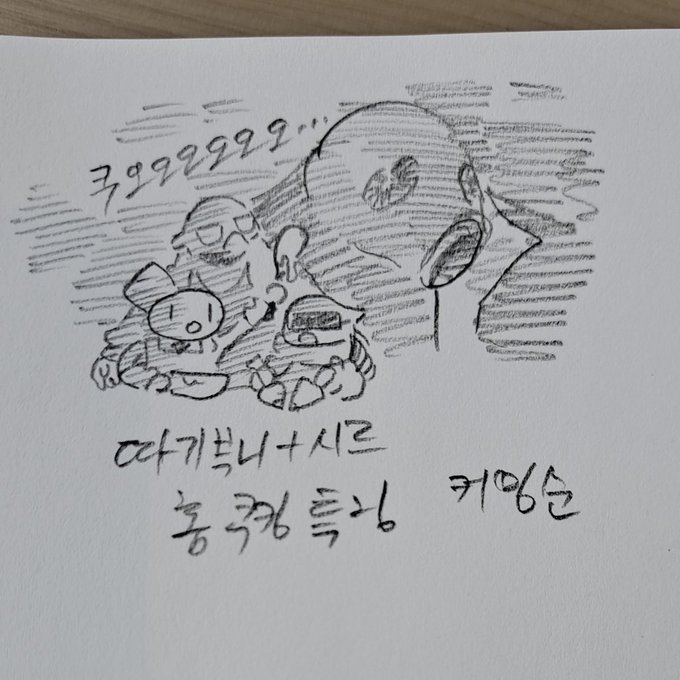 쿠오오오오오오...
따기붂니+시르
홍 쿡킹 특강
커밍순